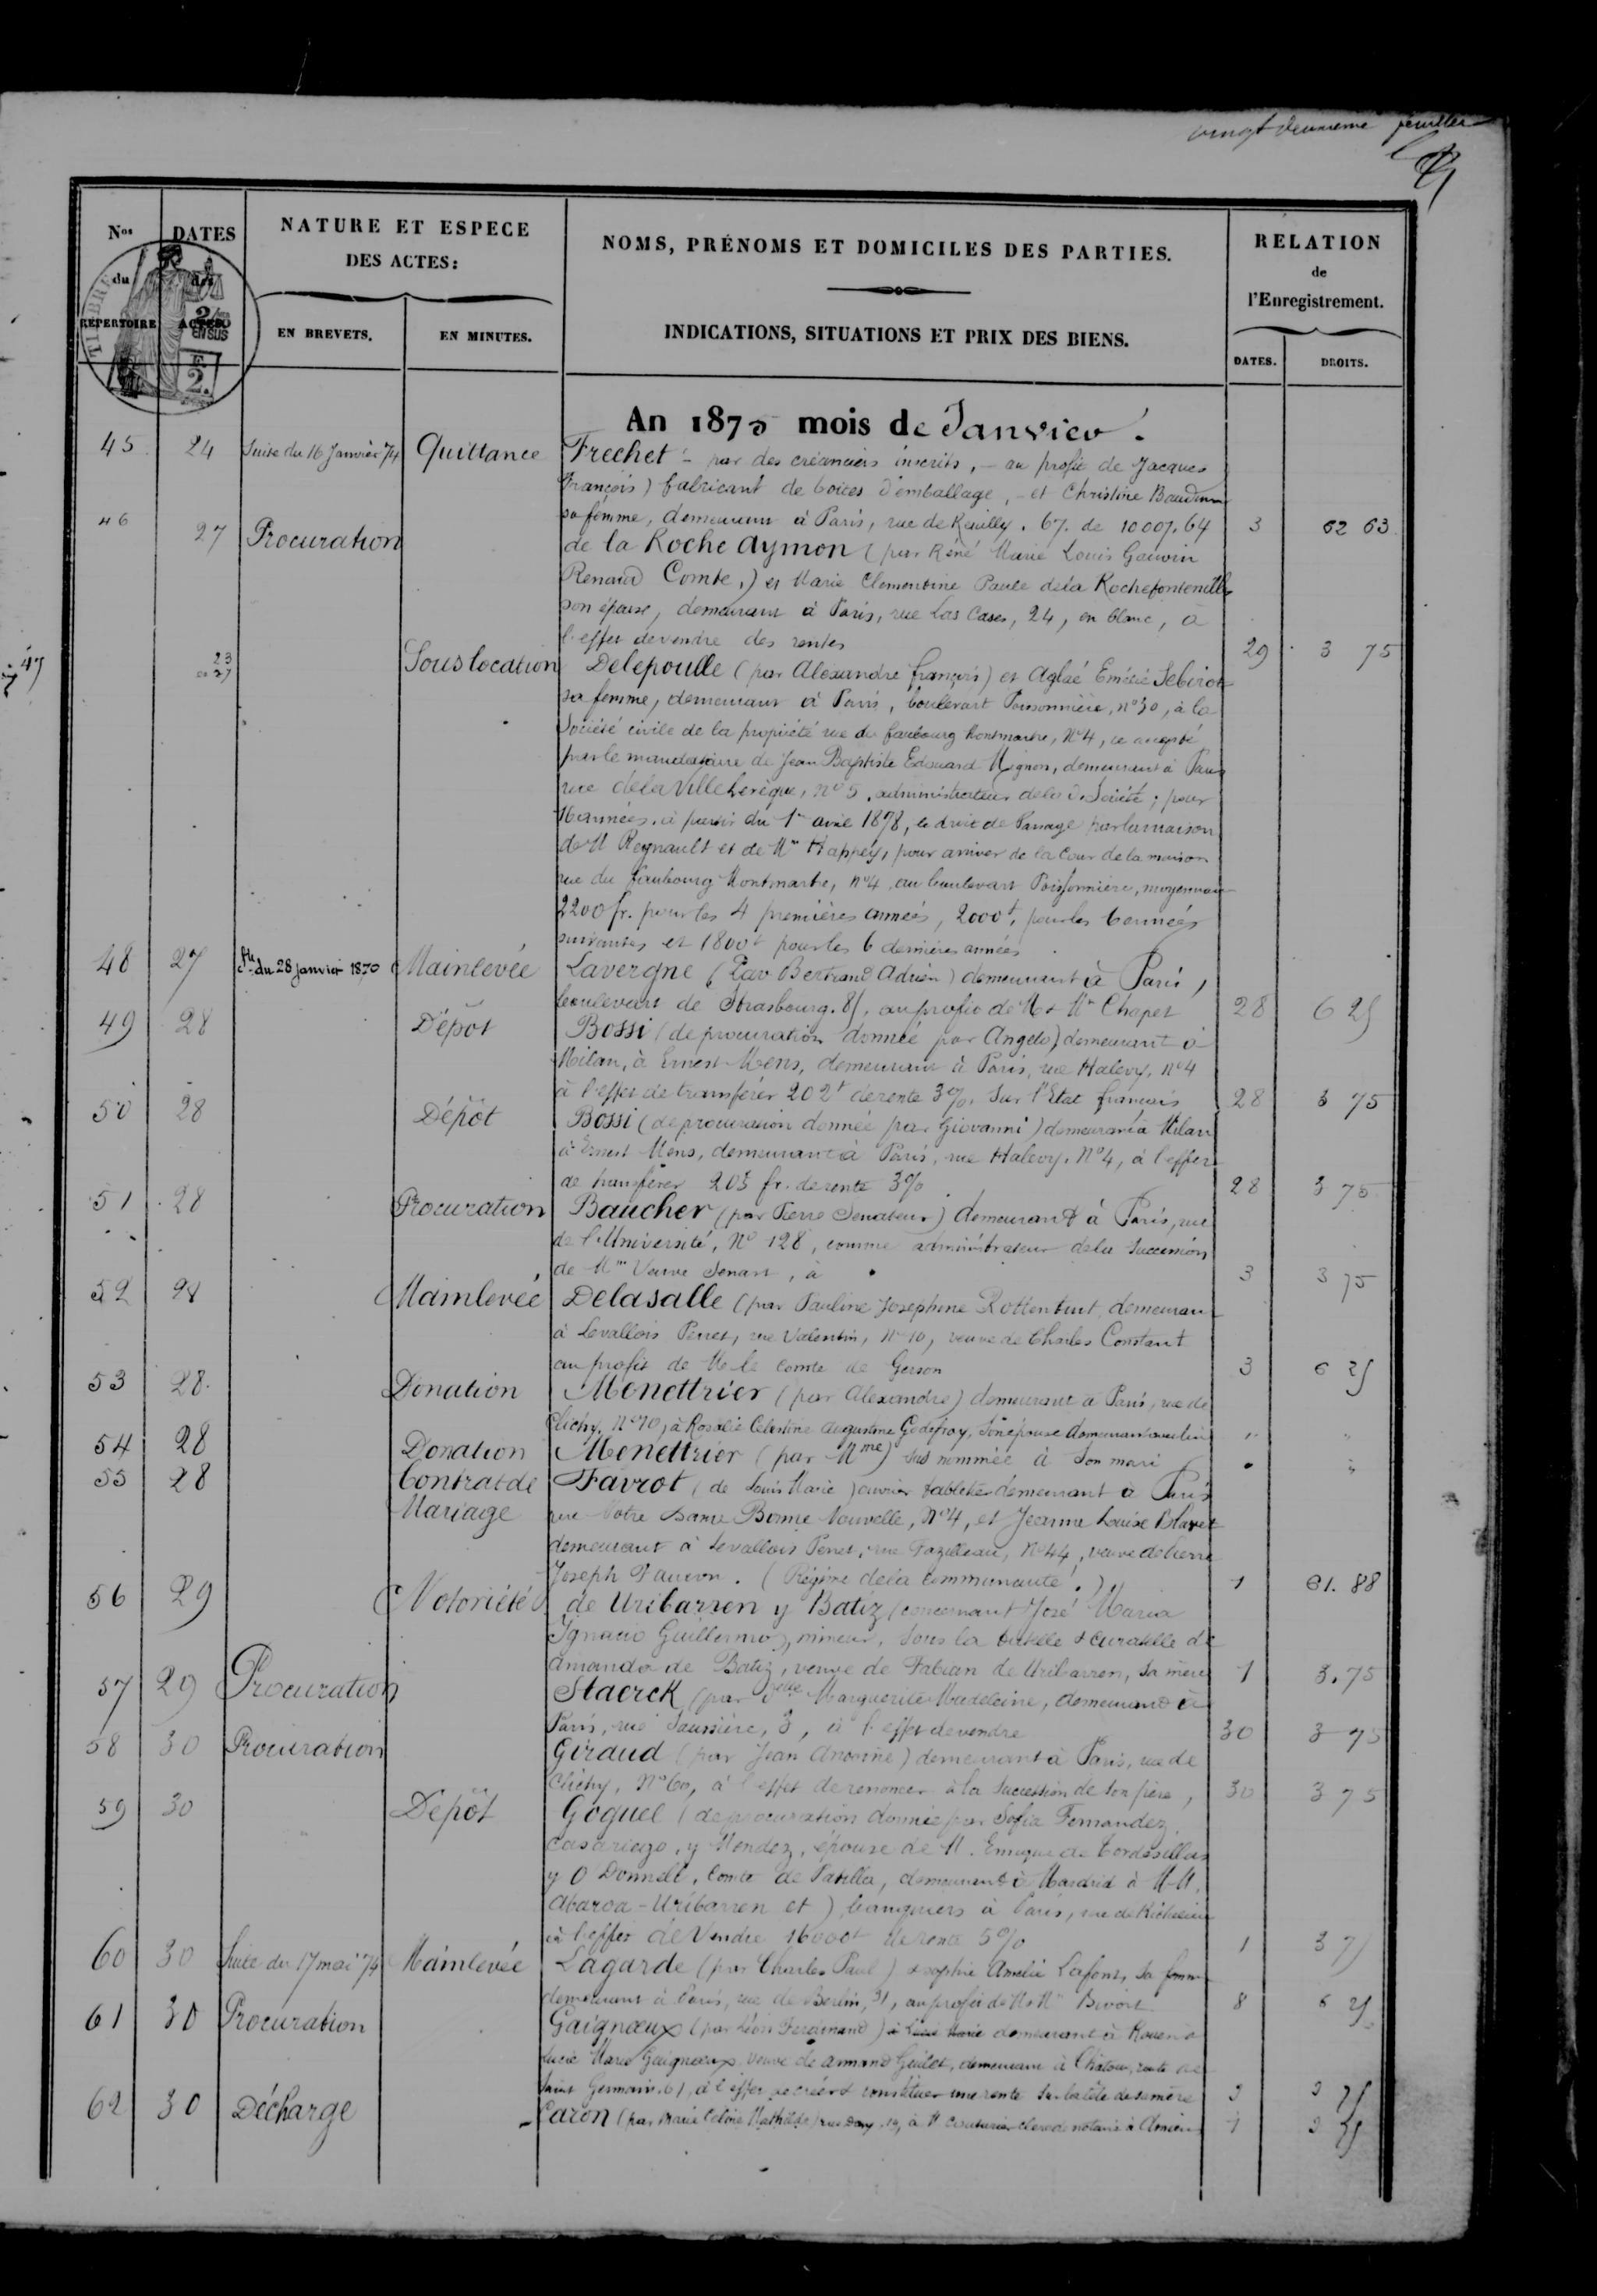 vingt deuxième feuillet
Nos du RÉPERTOIRE
DATES des ACTES
NATURE ET ESPECE DES ACTES:
EN BREVETS.
EN MINUTES.
NOMS, PRÉNOMS ET DOMICILES DES PARTIES.
INDICATIONS, SITUATIONS ET PRIX DES BIENS.
RELATION de l'Enregistrement.
DATES.
DROITS.
TIMBRE
2/10 EN SUS
F 2.
An 1875 mois de Janvier.
45 24 Suite du 16 Janvier 74 Quittance Frechet - par des créanciers inscrits, - au profit de Jacques
François) fabricant de boites d'emballage, - et Christine
sa femme, demeurant à Paris, rue de Reuilly. 67. de 10007.64 3 62 63
46 27 Procuration de la Roche Aymon (par René Marie Louis
Renaud Comte,) et Marie Clementine Paule de la Rochefontenille
son épouse, demeurant à Paris, rue Las Cases, 24, en blanc, à
l'effet de vendre des rentes 29 3 75
47 23 et 27 Sous location Delepoulle (par Alexandre françois) et Aglaé Emélie
sa femme, demeurant à Paris, boulevart Poissonnière, n° 30, à la
Société civile de la propriété rue du faubourg Montmartre, N° 4, ce accepté
par le mandataire de Jean Baptiste Edouard Mignon, demeurant à Paris
rue de la Ville Leveque, n° 5, administrateur de la d. Société; pour
16 années, à partir du 1er avril 1878, le droit de Passage par la maison
de M Regnault et de Me Happey, pour arriver de la Cour de la maison
rue du faubourg Montmartre, n° 4, au boulevart Poissonnière, moyennant
2200 fr. pour les 4 premières années, 2000f, pour les 6 années
suivantes et 1800f pour les 6 dernières années
48 27 du 28 janvier 1870 Mainlevée Lavergne (Par Bertrand Adrien) demeurant à Paris,
boulevart de Strasbourg. 85, au profit de M & Me Chapet 28 6 25
49 28 Dépot Bossi (de procuration donnée par Angelo) demeurant à
Milan, à Ernest Mens, demeurant à Paris, rue Halevy, N° 4
à l'effet de transférer 202f de rente 3%. Sur l'Etat français 28 3 75
50 28 Dépôt Bossi (de procuration donnée par Giovanni) demeurant à Milan
à Ernest Mens, demeurant à Paris, rue Halevy. N° 4, à l'effet
de transférer 205 fr. de rente 3% 28 3 75
51 28 Procuration Baucher (par Pierre Senateur) demeurant à Paris, rue
de l'Université, N° 128, comme administrateur de la succession
de Mme Veuve Senart, à 3 3 75
52 28 Mainlevée Delasalle (par Pauline Josephine demeurant
à Levallois Perret, rue Valentin, N° 10, veuve de Charles Constant
au profit de M. le comte de Gerson 3 6 25
53 28 Donation Menettrier (par Alexandre) demeurant à Paris, rue de
Clichy, N° 70, à Rosalie Celestine Augustine Godefroy, son épouse demeurant avec lui " "
54 28 Donation Menettrier (par Mme) sus nommée à son mari "
55 28 Contrat de Mariage Favrot (de Louis Marie) ouvrier tabletier demeurant à Paris
rue Notre Dame Bonne Nouvelle, N° 4, et Jeanne Louise
demeurant à Levallois Perret, rue Fazilleau, N° 44, veuve de Pierre
Joseph. (Régime de la communauté.) 1 61.88
56 29 Notoriété de Uribarren y Batiz (concernant José Maria
Ignacio Guillermo), mineur, sous la tutelle & curatelle de
Amanda de Batiz, veuve de Fabian de Uribarren, sa mère 1 3.75
57 29 Procuration Staerck (par Delle Marguerite Madeleine, demeurant à
Paris, rue Saussière, 3, à l'effet de vendre 30 3 75
58 30 Procuration Giraud (par Jean Antoine) demeurant à Paris, rue de
Clichy, N° 60, à l'effet de renoncer à la succession de son père, 30 3 75
59 30 Dépôt Goguel (de procuration donnée par Sofia Fernandez
Casariego, y Mendez, épouse de M. Enrique de Tordesillas
y O Donnell, Comte de Patilla, demeurant à Madrid à M.M.
Abaroa-Uribarren et) banquiers à Paris, rue de Richelieu
à l'effet de vendre 16000f de rente 5% 1 3 75
60 30 Suite du 17 mai 74 Mainlevée Lagarde (par Charles Paul) & sophie Amelie Lafont, sa femme
demeurant à Paris, rue de Berlin, 31, au profit de M & Me 8 6 25
61 30 Procuration Gaignœux (par Léon Ferdinand) demeurant à Rouen à
Lucie Marie Gaignœux veuve de Armand, demeurant à Chatou, route de
Saint Germain, 61, à l'effet de créer & constituer une rente sur la tête de sa mère 3 3 75
62 30 Décharge Caron (par Marie Celine Mathilde) à M Couturier clerc de notaire à Amiens 1